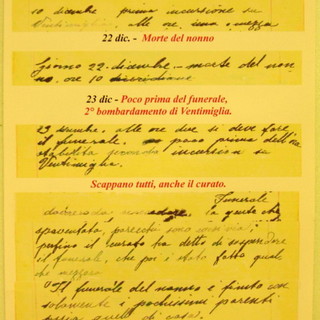 10 dicembre prima incursione su
Ventimiglia, alle ore una e mezza
22 dic. - Morte del nonno
Giorno 22 dicembre - morte del non
no, ore 10
23 dic - Poco prima del funerale,
2° bombardamento di Ventimiglia.
23 dicembre, alle ore due si deve fare,
il funerale, poco prima dell'ora
stabilita seconda incursion su
Ventimiglia
Scappano tutti, anche il curato.
Funerale
la gente che
spaventata, parecchi sono
perfino il curato ha detto di sospendere
il funerale, che poi è stato fatto qual
che
Il funerale del nonno è finito con
solamente i prossimi parenti
quelli di casa.